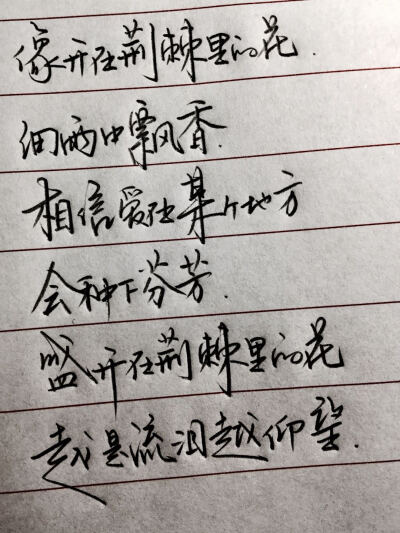 像开在荆棘里的花.
细雨中飘香.
相信爱在某个地方
会种下芬芳.
盛开在荆棘里的花
越是流泪越仰望.